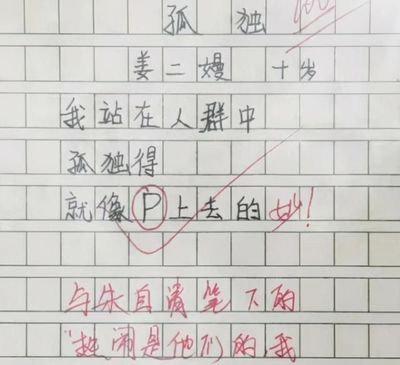 孤独
姜二嫚 十岁
我站在人群中
孤独得
就像P上去的 妙!
与朱自清笔下的
“热闹是他们的,我